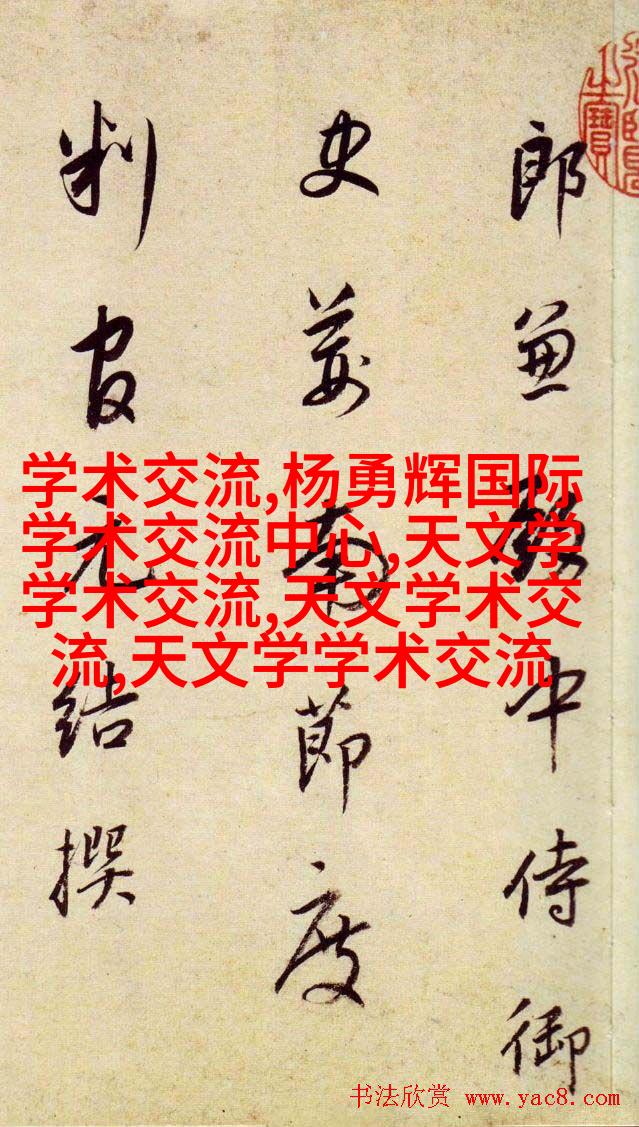 郎兼殿中侍御
史荊南節度
判官元結撰
学术交流,杨勇辉国际
学术交流中心,天文学
学术交流,天文学术交
流,天文学学术交流
书法欣赏 www.yac8.com